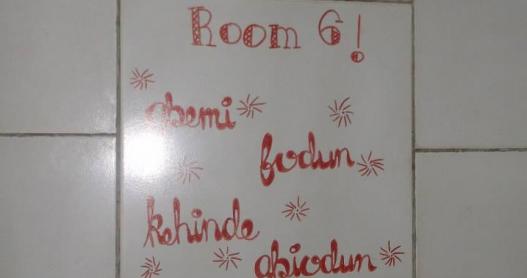 Room 6!
gbemi
bodun
kehinde
abiodun